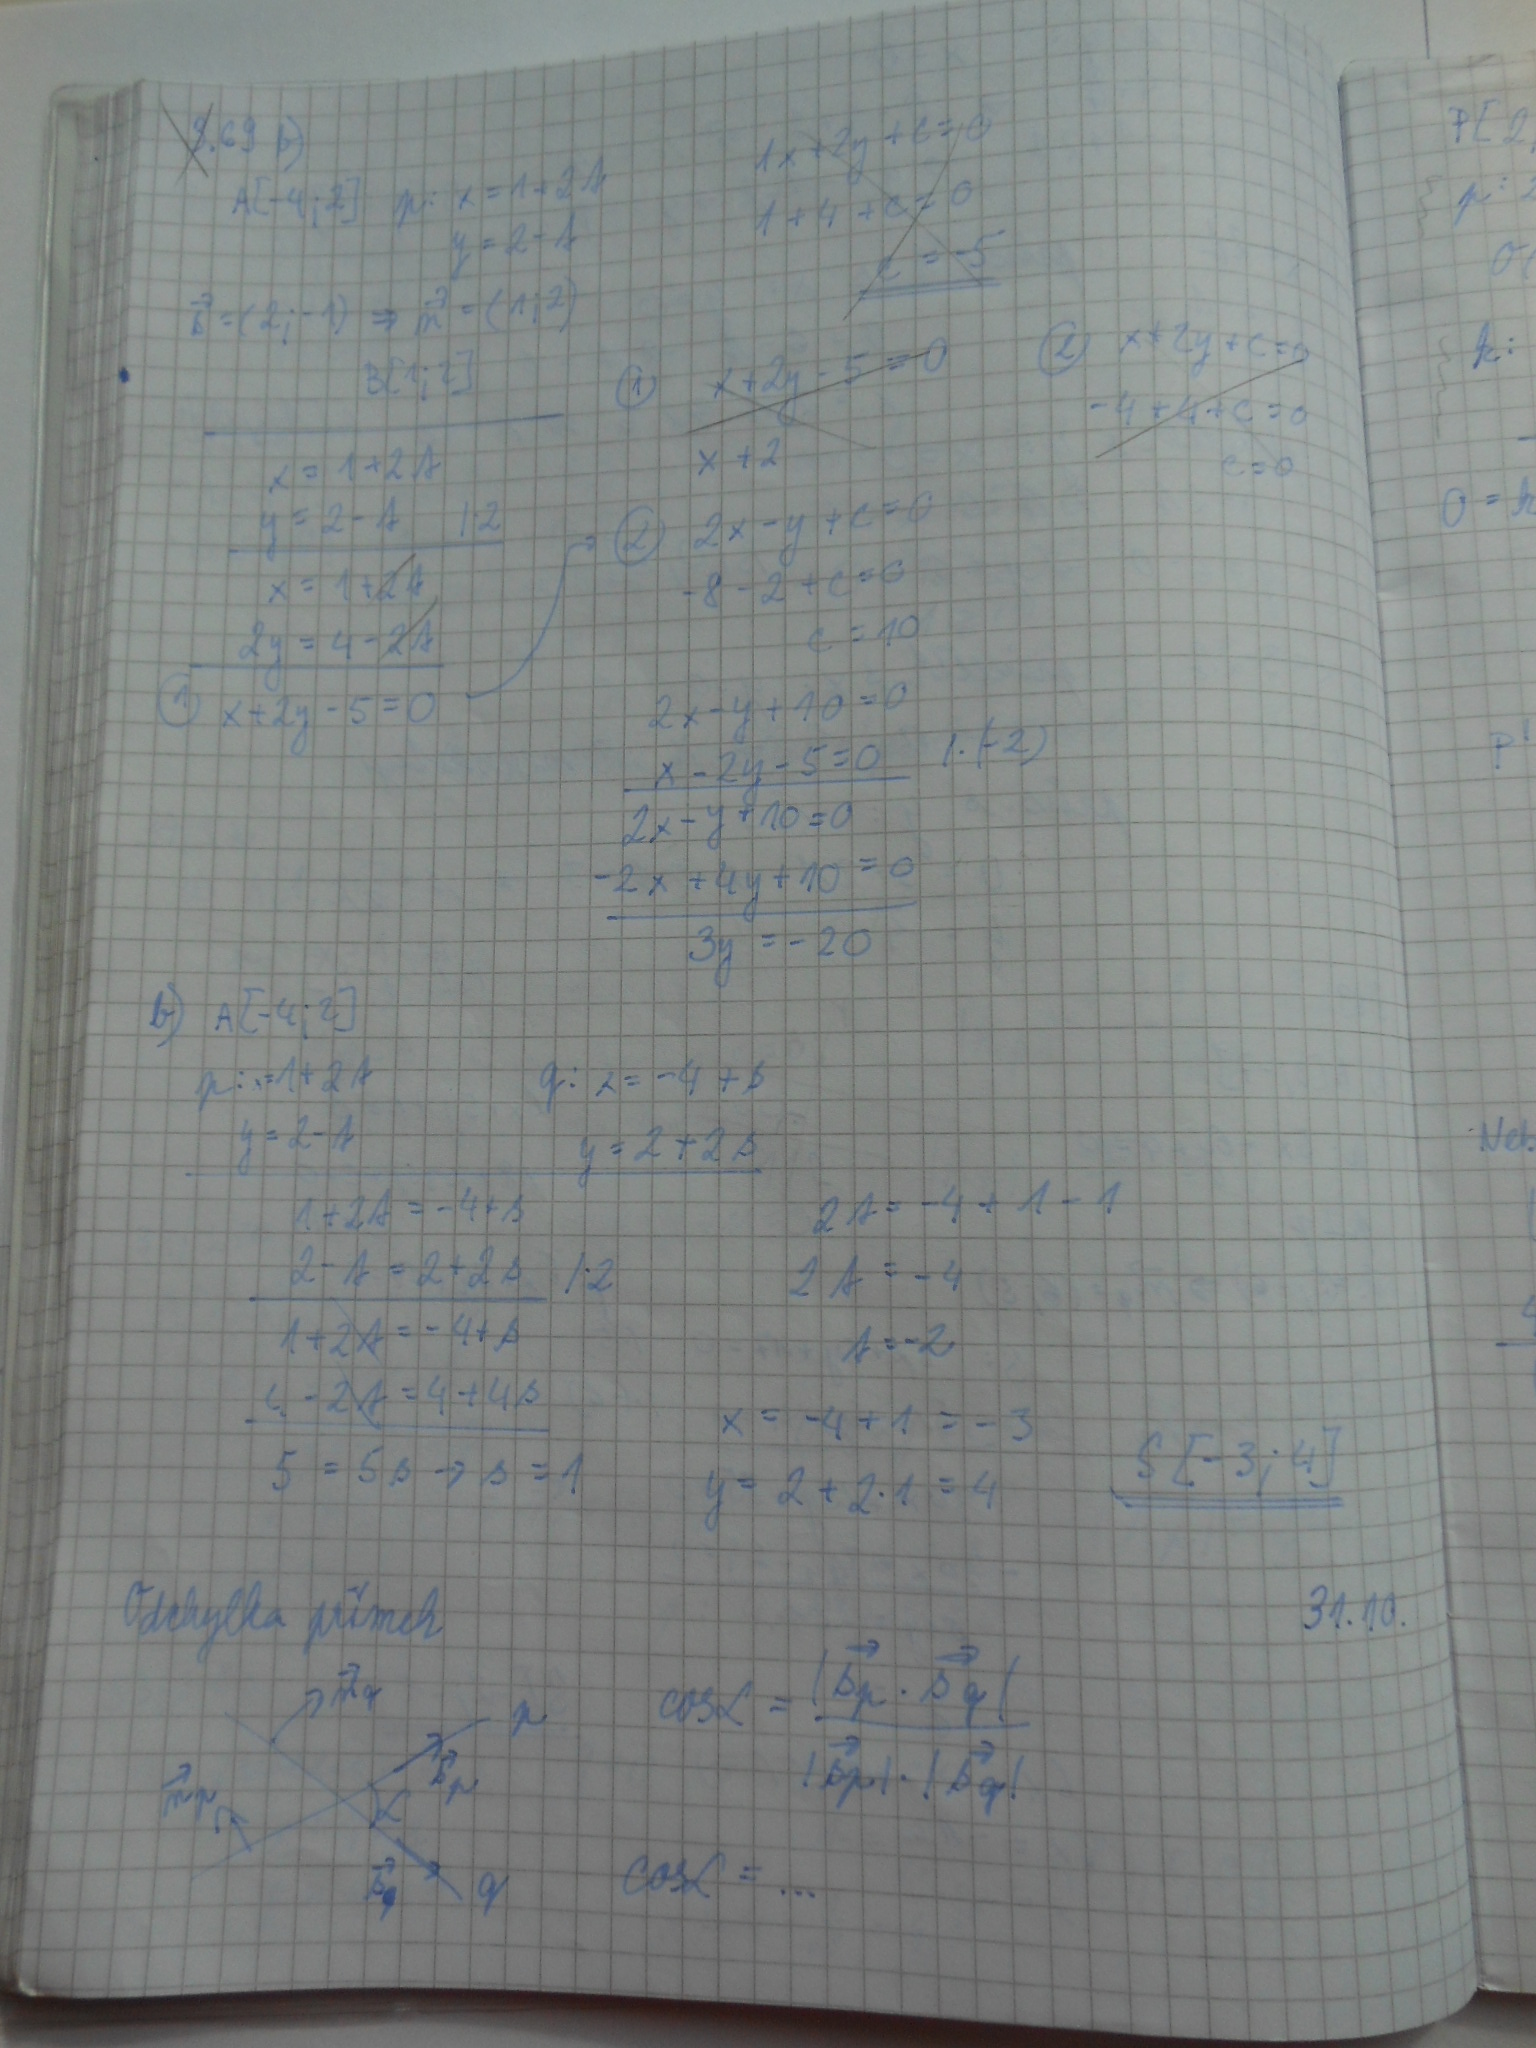 9.69 b)
A[-4;2] p: x = 1+2t
y = 2-t
s⃗ = (2;-1) ⇒ n⃗ = (1;2)
B[1;2]
x = 1+2t
y = 2-t /·2
x = 1+2t
2y = 4-2t
① x+2y-5=0
1x+2y+c=0
1+4+c=0
c = -5
① x+2y-5=0
x+2
② x+2y+c=0
-4+4+c=0
c=0
② 2x-y+c=0
-8-2+c=0
c=10
2x-y+10=0
x-2y-5=0 /·(-2)
2x-y+10=0
-2x+4y+10=0
3y = -20
b) A[-4;2]
p: x=1+2t q: x = -4+s
y = 2-t y = 2+2s
1+2t = -4+s
2-t = 2+2s /·2
1+2t = -4+s
4-2t = 4+4s
5 = 5s → s = 1
2t = -4+1-1
2t = -4
t=-2
x = -4+1 = -3
y = 2+2·1 = 4
S[-3;4]
Odchylka přímek 31.10.
n⃗q p
s⃗p
n⃗p α
s⃗q q
cosα = |s⃗p · s⃗q| / |s⃗p|·|s⃗q|
cosα = ...
P[2;
p:
k:
0 = k
P'